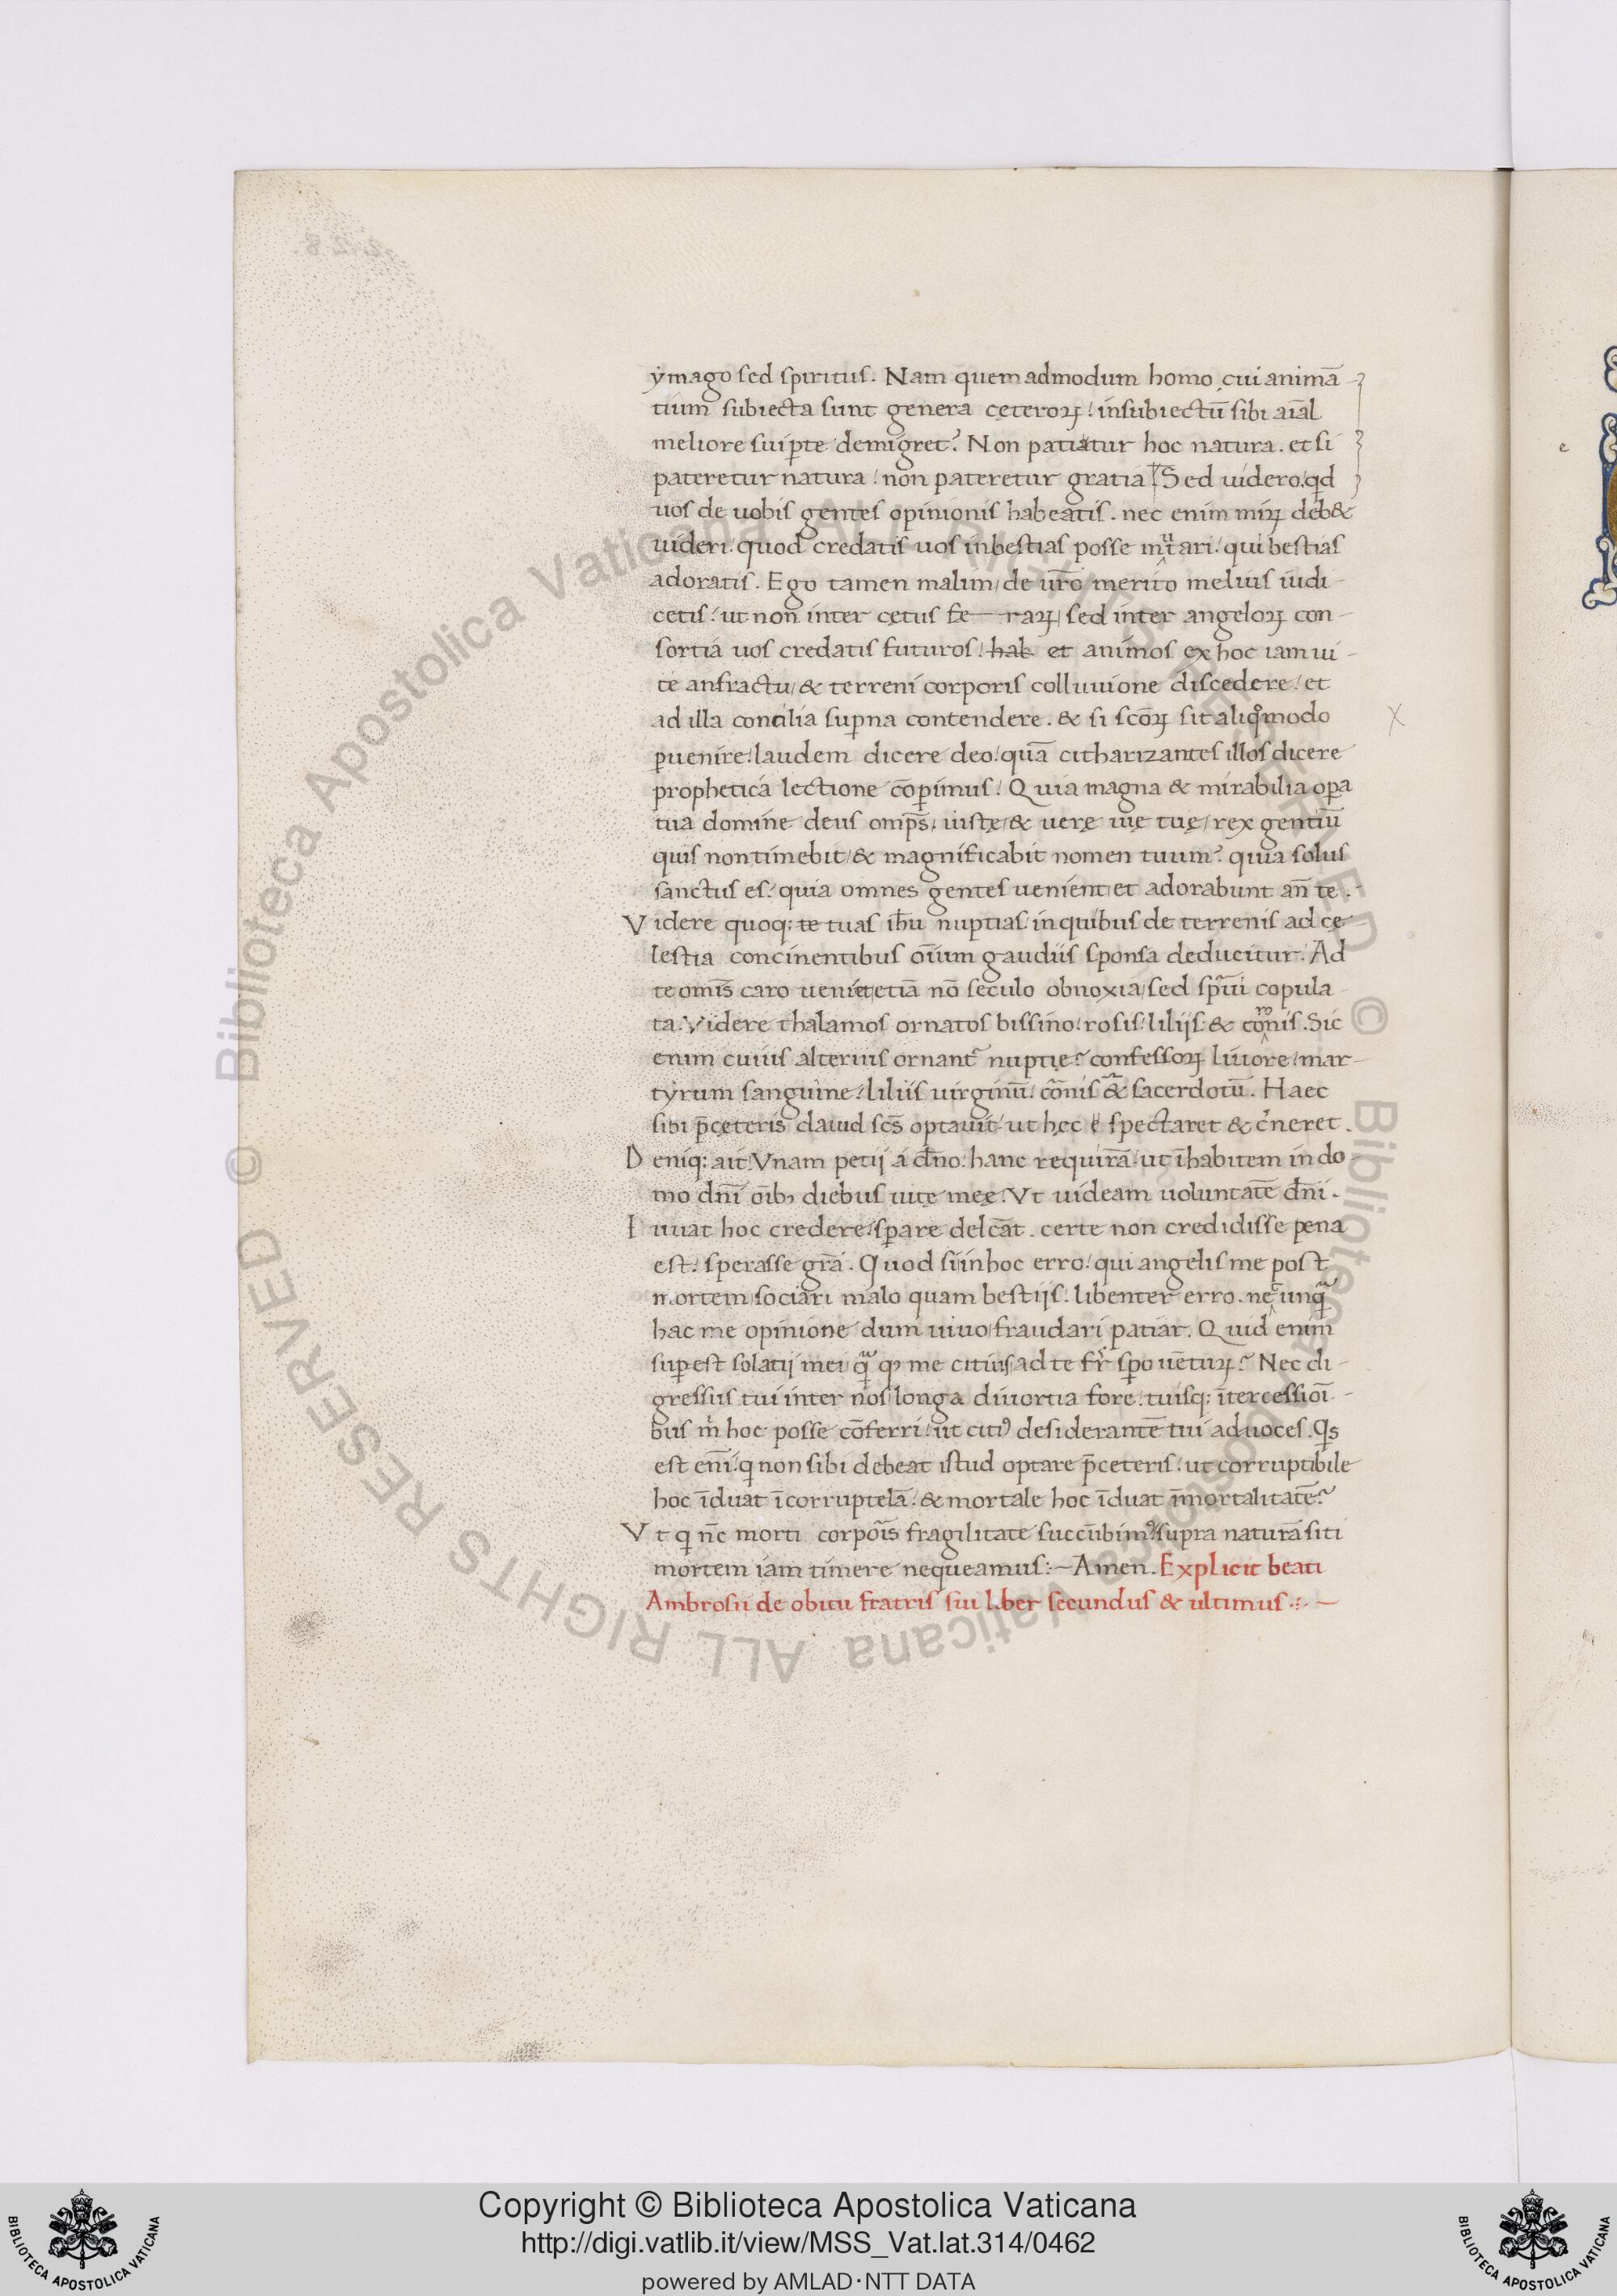 ymago sed spiritus. Nam quem admodum homo cui animā-
tium subiecta sunt genera cęteroꝝ! insubiectū sibi aīal
meliore sui ꝑte demigret? Non patiatur hoc natura. et si
pateretur natura! non pateretur gratia. Sed uidero! qd
uos de uobis gentes opinionis habeatis. nec enim miꝝ deb&
uideri. quod credatis uos in bestias posse mutari! qui bestias
adoratis. Ego tamen malim/ de uro merito melius iudi-
cetis! ut non inter cętus fe—raꝝ/ sed inter angeloꝝ con-
sortia uos credatis futuros! hab et animos ex hoc iam ui-
te anfractu/ & terreni corporis colluuione discedere! et
ad illa concilia suꝑna contendere. & si scōꝝ sit aliqͦmodo
ꝑuenire! laudem dicere deo! quā citharizantes illos dicere
prophetica lectione cōꝑimus! Quia magna & mirabilia oꝑa
tua domine deus omps̄. iustę/ & uerę uię tuę/ rex gentiū
quis non timebit/ & magnificabit nomen tuum? quia solus
sanctus es! quia omnes gentes uenient et adorabunt añ te.
Videre quoq; te tuas ihu nuptias/ in quibus de terrenis ad cę-
lestia concinentibus oīum gaudiis sponsa deducitur! Ad
te omīs caro ueniet etiā nō seculo obnoxia/ sed spūi copula-
ta. Videre thalamos ornatos bissino! rosis! lilijs! & coronis. Sic
enim cuius alterius ornant nuptię? confessoꝝ liuore! mar-
tyrum sanguine! liliis uirginū! cōnis & sacerdotū. Haec
sibi p̄ceteris dauid scs̄ optauit! ut hęc spectaret & cerneret.
Deniq; ait! Vnam petij a dn̄o! hanc requirā! ut īhabitem in do-
mo dn̄i oīb; diebus uitę meę! Vt uideam uoluntatē dn̄i.
Iuuat hoc credere! sꝑare delcāt. certe non credidisse pena
est! sperasse grā. Quod si in hoc erro! qui angelis me post
mortem sociari malo quam bestijs! libenter erro. nec unq̄
hac me opinione dum uiuo fraudari patiar. Quid enim
suꝑest solatij mei q̄ ꝙ me citius ad te fr̄ spo uētuꝝ? Nec di-
gressus tui inter nos longa diuortia fore! tuisq; ītercessioī-
bus m hoc posse cōferri! ut citiꝰ desiderantē tui aduoces. Qs
est enī! q non sibi debeat istud optare p̄ceteris! ut corruptibile
hoc īduat īcorruptelā! & mortale hoc īduat īmortalitatē?
Vt q nc̄ morti corpoīs fragilitate succūbimꝰ! supra naturā siti
mortem iam timere nequeamus:— Amen. Explicit beati
Ambrosii de obitu fratris sui liber secundus & ultimus :—
Copyright © Biblioteca Apostolica Vaticana
http://digi.vatlib.it/view/MSS_Vat.lat.314/0462
powered by AMLAD·NTT DATA
BIBLIOTECA APOSTOLICA VATICANA
BIBLIOTECA APOSTOLICA VATICANA
© Biblioteca Apostolica Vaticana ALL RIGHTS RESERVED
© Biblioteca Apostolica Vaticana ALL RIGHTS RESERVED